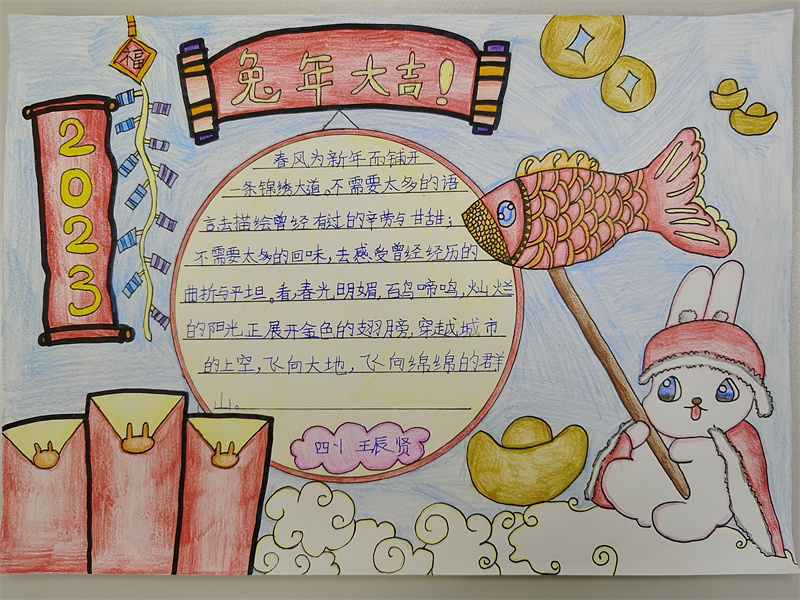 福
兔年大吉！
2023
春风为新年而铺开
一条锦绣大道。不需要太多的语
言去描绘曾经有过的辛劳与甘甜；
不需要太多的回味，去感受曾经经历的
曲折与平坦。看，春光明媚，百鸟啼鸣，灿烂
的阳光，正展开金色的翅膀，穿越城市
的上空，飞向大地，飞向绵绵的群
山。
四1 王辰贤